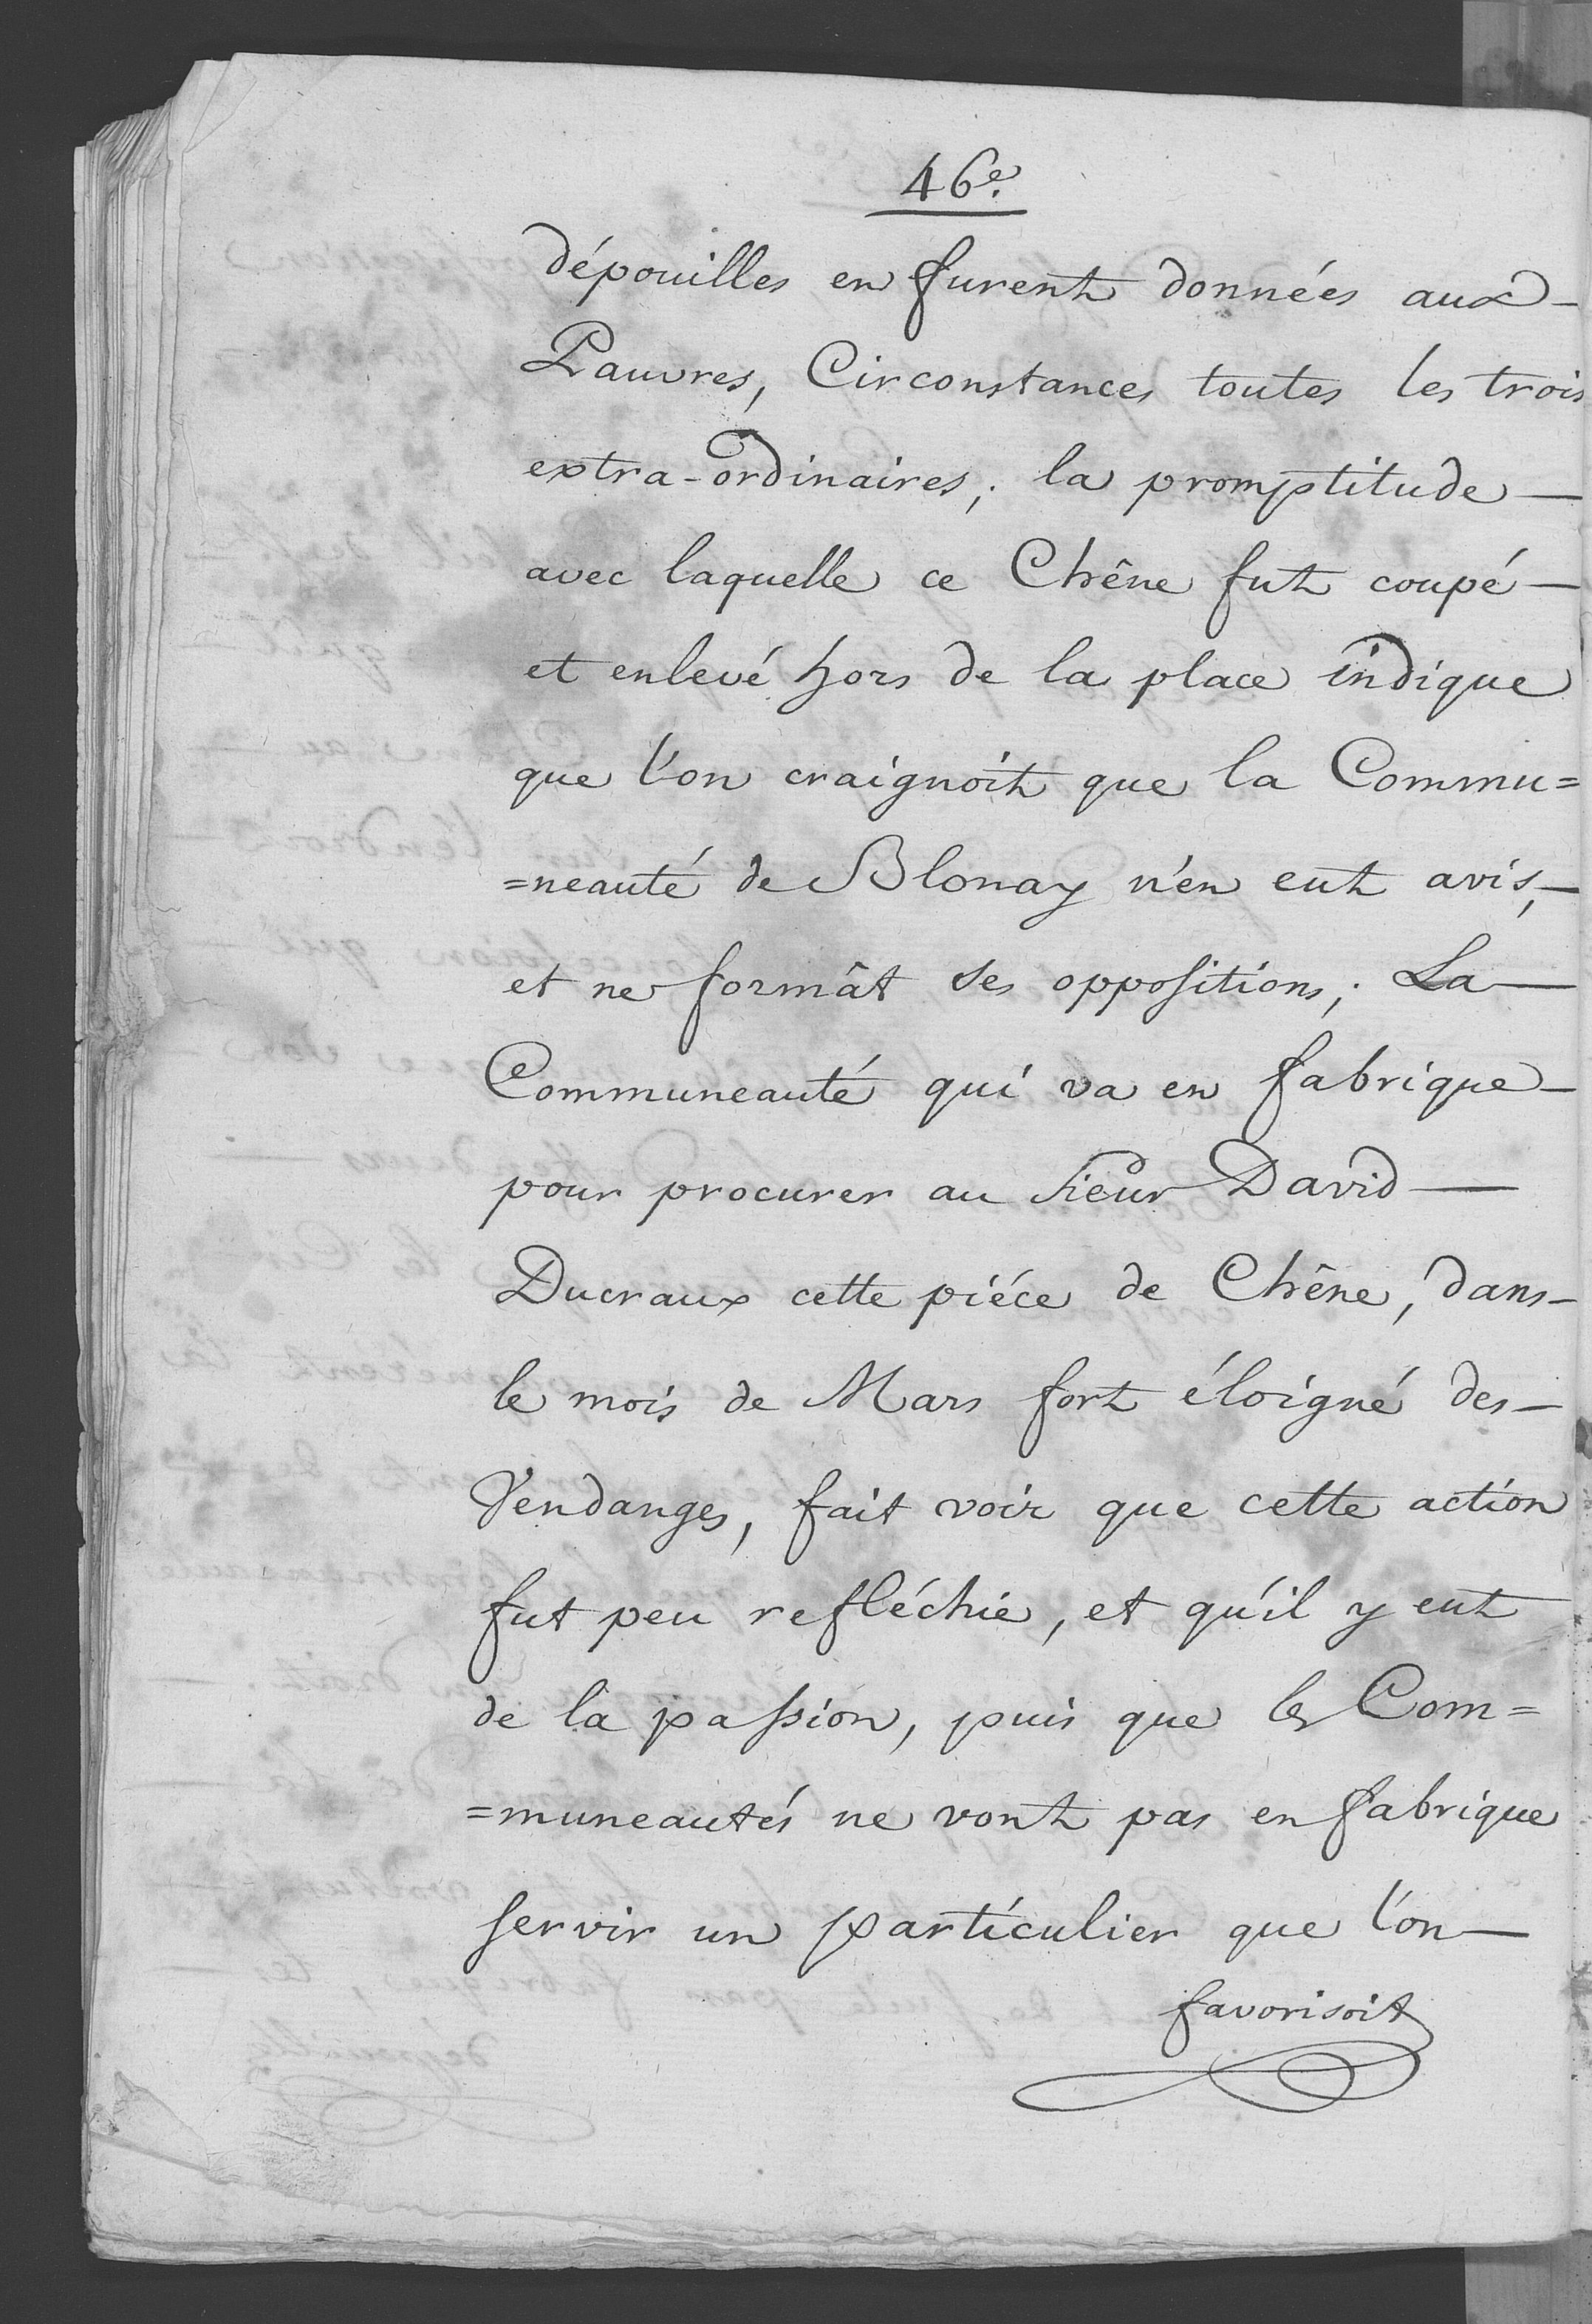 46e.
dépouilles en furent données aux-
Pauvres, Circonstances toutes les trois
extra-ordinaires; la promptitude—
avec laquelle ce Chêne fut coupé—
et enlevé hors de la place indique
que l'on craignoit que la Commu=
=neauté de Blonay n'en eut avis,—
et ne formât ses oppositions; La—
Communeauté qui va en fabrique—
pour procurer au Sieur David—
Ducraux cette piéce de Chêne, dans—
le mois de Mars fort éloigné des—
Vendanges, fait voir que cette action
fut peu refléchie, et qu'il y eut
de la passion, puis que les Com=
=muneautés ne vont pas en fabrique
servir un particulier que l'on—
favorisoit